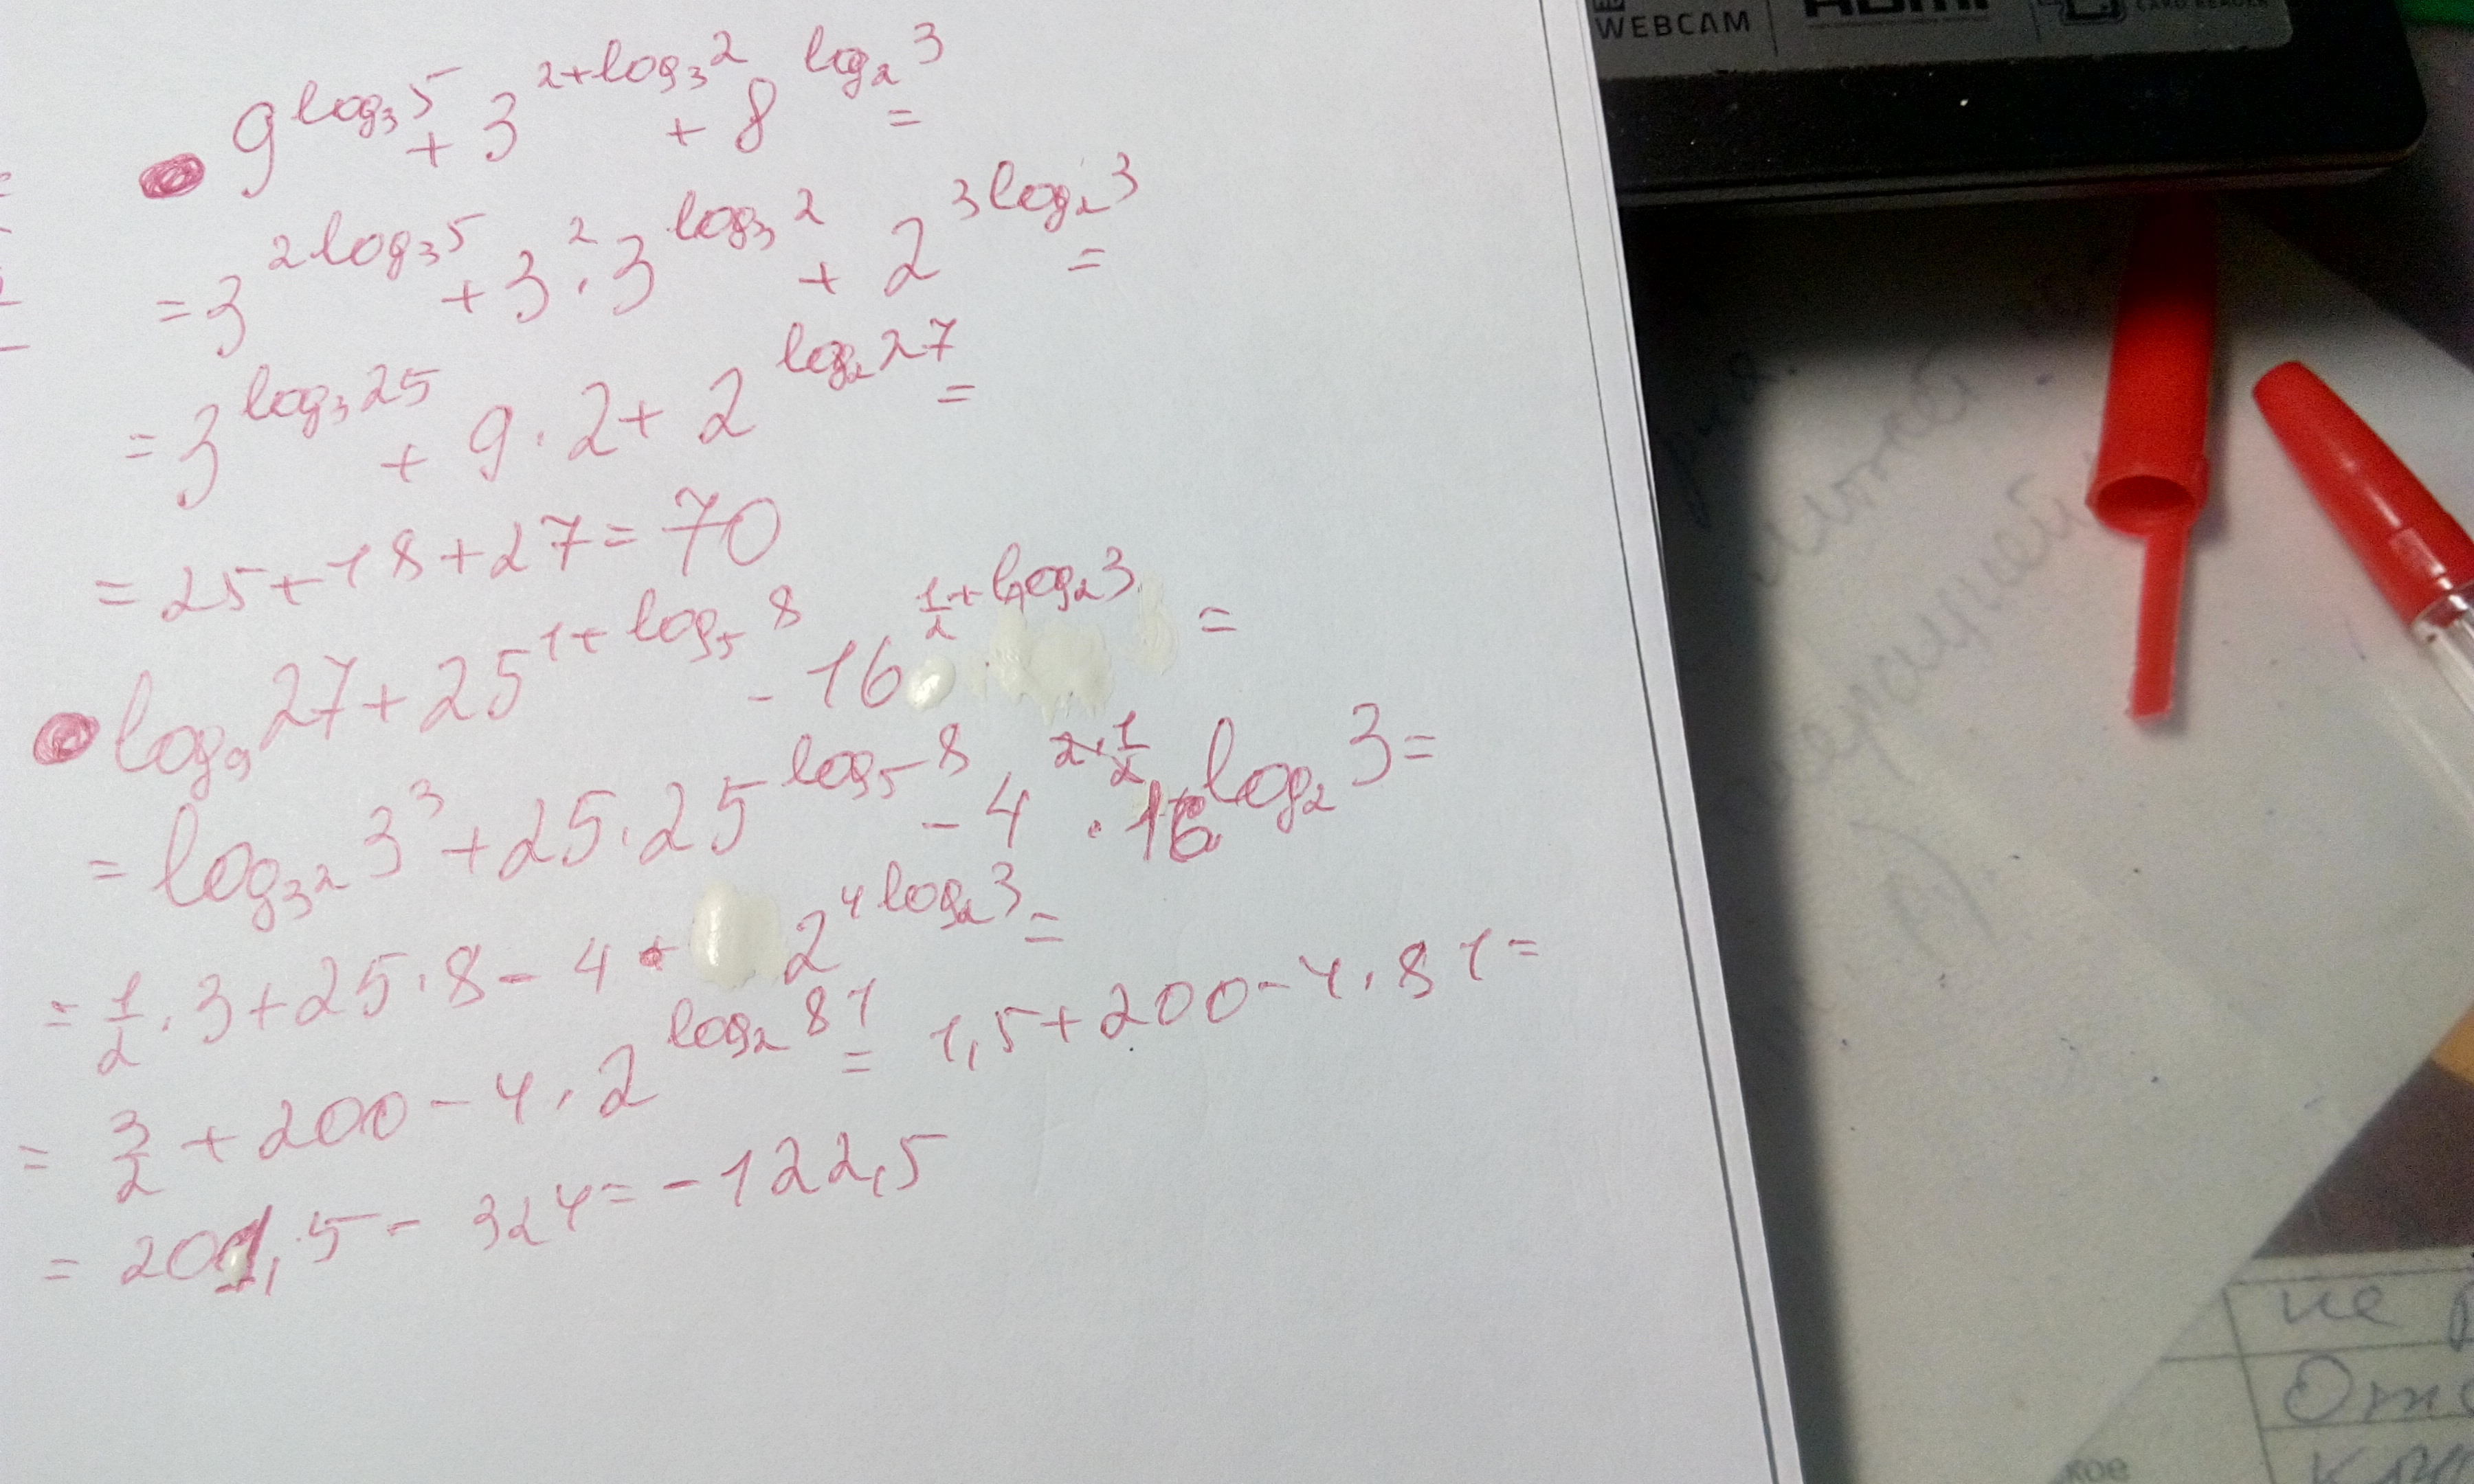 9^{log₃5} + 3^{2+log₃2} + 8^{log₂3} =
= 3^{2log₃5} + 3² · 3^{log₃2} + 2^{3log₂3} =
= 3^{log₃25} + 9 · 2 + 2^{log₂27} =
= 25 + 18 + 27 = 70
log₉27 + 25^{1+log₅8} - 16^{1/2+log₂3} =
= log_{3²}3³ + 25 · 25^{log₅8} - 4^{2·1/2} · 16^{log₂3} =
= 1/2 · 3 + 25 · 8 - 4 · 2^{4log₂3} =
= 3/2 + 200 - 4 · 2^{log₂81} = 1,5 + 200 - 4 · 81 =
= 201,5 - 324 = -122,5
WEBCAM
HDMI
CARD READER
не